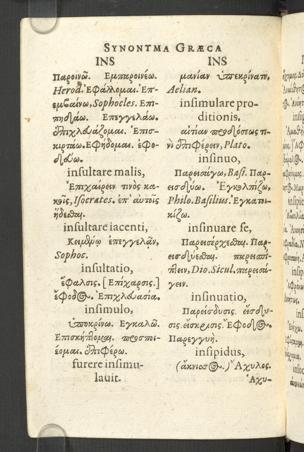 SYNONYMA GRÆCA
INS
Παροινῶ. Ἐμπαροινέω.
Herod. Ἐφάλλομαι. Ἐπ-
εμβαίνω, Sophocles. Ἐπι-
πηδάω. Ἐπεγγελάω.
Ἐπιχλευάζομαι. Ἐπισ-
κιρτάω. Ἐφήδομαι. ἐφο-
δεύω.
insultare malis,
Ἐπιχαίρειν τινὸς κα-
κοῖς, Isocrates. ἐπ' αὐτοῖς
ἥδεσθαι.
insultare iacenti,
Κειμένῳ ἐπεγγελᾶν,
Sophoc.
insultatio,
ἔφαλσις. [Ἐπίχαρσις.]
ἔφοδος. Ἐπιχλευασία.
insimulo,
ὑποκρίνω. Ἐγκαλῶ.
Ἐπισκήπτομαι. προσποι-
έομαι. Ἐπιφέρω.
furere insimu-
lauit.
INS
μανίαν ὑπεκρίνατο,
Aelian.
insimulare pro-
ditionis,
αἰτίαν προδόσεως τι-
νὶ ἐπιφέρειν, Plato.
insinuo,
Παρεισάγω, Basil. Παρ-
εισδύω. Ἐγκολπίζω,
Philo. Basilius. Ἐγκατοι-
κίζω.
insinuare se,
Παρεισέρχεσθαι. Παρ-
εισδύεσθαι. παρεισπί-
πτειν, Dio. Sicul. παρεισά-
γειν.
insinuatio,
Παρείσδυσις. εἴσδυ-
σις. εἴσκρισις. Ἔφοδος.
Παρεγγυή.
insipidus,
(ἄκνισος.) Ἄχυλος.
Ἄχυ-